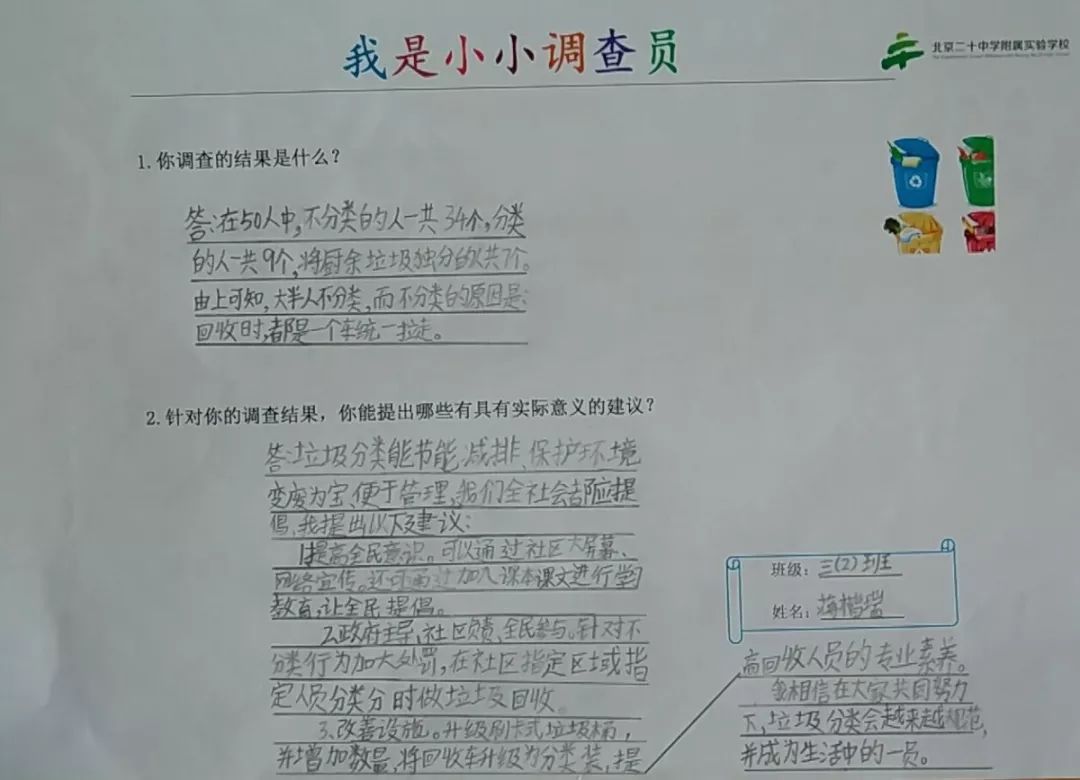 我是小小调查员
北京二十中学附属实验学校
1.你调查的结果是什么？
答:在50人中,不分类的人一共34个,分类
的人一共9个,将厨余垃圾独分的人共7个。
由上可知,大半人不分类,而不分类的原因是:
回收时,都是一个车统一拉走。
2.针对你的调查结果，你能提出哪些有具有实际意义的建议？
答:垃圾分类能节能减排、保护环境
变废为宝、便于管理,我们全社会都应提
倡,我提出以下及建议:
1.提高全民意识。可以通过社区大屏幕、
网络宣传。还可通过加入课本课文进行学习
教育,让全民提倡。
2.政府主导,社区负责,全民参与。针对不
分类行为加大处罚,在社区指定区域或指
定人员分类分时做垃圾回收。
3.改善设施。升级刷卡式垃圾桶,
并增加数量,将回收车升级为分类装,提
班级：三(2)班
姓名：
高回收人员的专业素养。
我相信在大家共同努力
下,垃圾分类会越来越规范,
并成为生活中的一员。